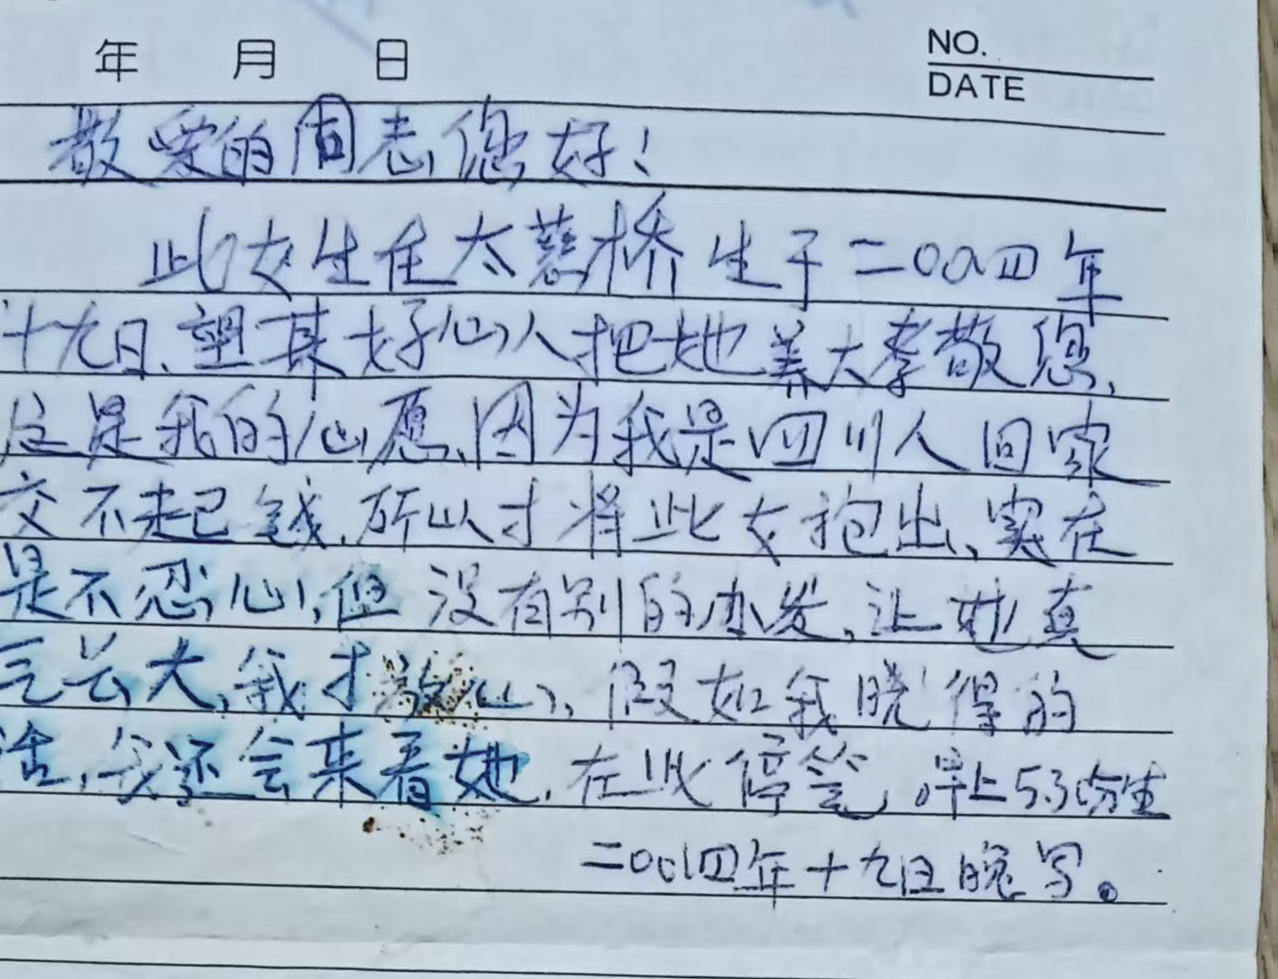 年 月 日
NO.
DATE
敬爱的同志您好!
此女生在太慈桥生于二〇〇四年
十九日、望某好心人把她养大孝敬您、
这是我的心愿、因为我是四川人回家
交不起钱、所以才将此女抱出、实在
是不忍心、但没有别的办发、让她真
气长大、我才放心、假如我晓得的
话、我还会来看她、在此停笔、早上5.30分生
二〇〇四年十九日晚写。